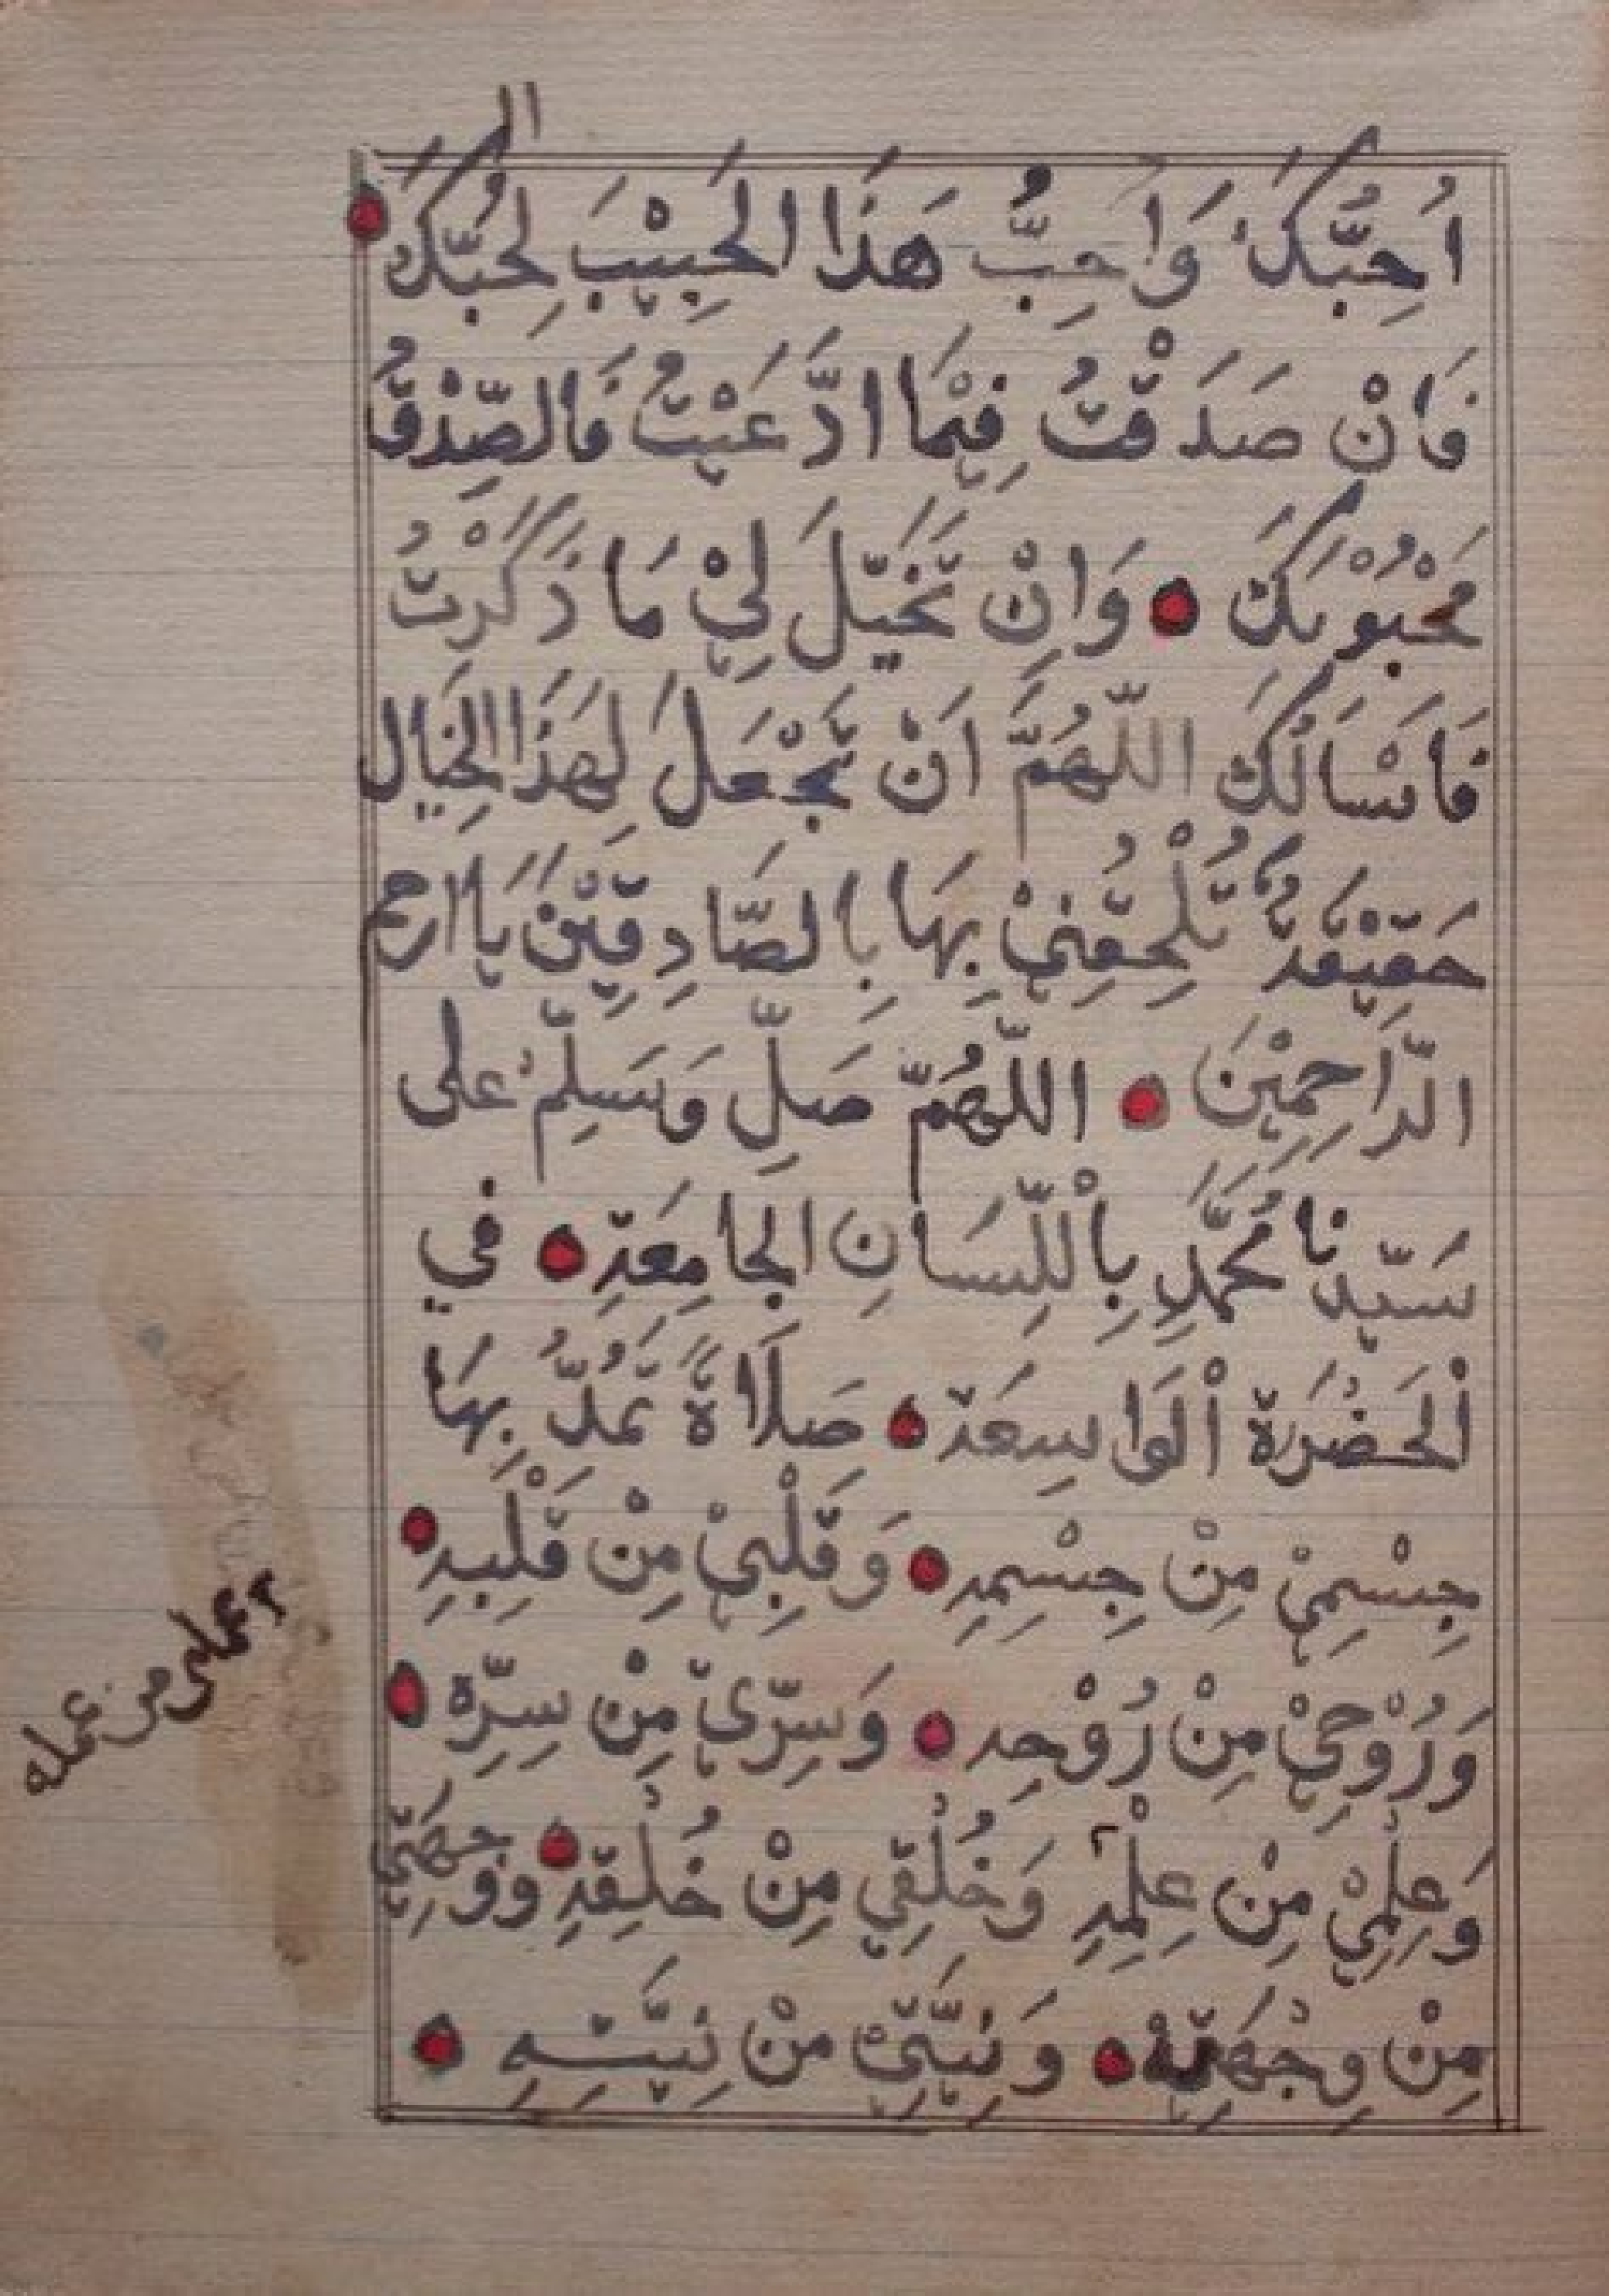 اُحِبُّكَ وَاُحِبُّ هَذَا الْحَبِيْبَ لِحُبِّكَ
فَاِنْ صَدَقْتُ فِيْمَا ادَّعَيْتُ فَالصِّدْقُ
مَحْبُوْبُكَ وَاِنْ تَخَيَّلَ لِيْ مَا ذَكَرْتُ
فَاَسْاَلُكَ اللّهُمَّ اَنْ تَجْعَلَ لِهَذَا الْخَيَال
حَقِيْقَةً تُلْحِقُنِيْ بِهَا بِالصَّادِقِيْنَ يَا ارحم
الرَّاحِمِيْنَ اللّهُمَّ صَلِّ وَسَلِّمْ على
سَيِّدِنَا مُحَمَّدٍ بِاْللِّسَانِ الجَامِعَةِ في
اْلحَضْرَةِ اْلوَاسِعَة صَلَاةً تَمُدُّ بِهَا
جِسْمِيْ مِنْ جِسْمِهِ وَقَلْبِيْ مِنْ قَلْبِهِ
وَرُوْحِيْ مِنْ رُوْحِه وَسِرِّيْ مِنْ سِرِّه
وَعِلْمِيْ مِنْ عِلْمِهِ ٢ وَخُلُقِي مِنْ خُلُقِهِ ووجهتي
مِنْ وِجْهَتِهْ وَنِيَّتِيْ مِنْ نِيَّتِهِ
٢ وعملى من عمله